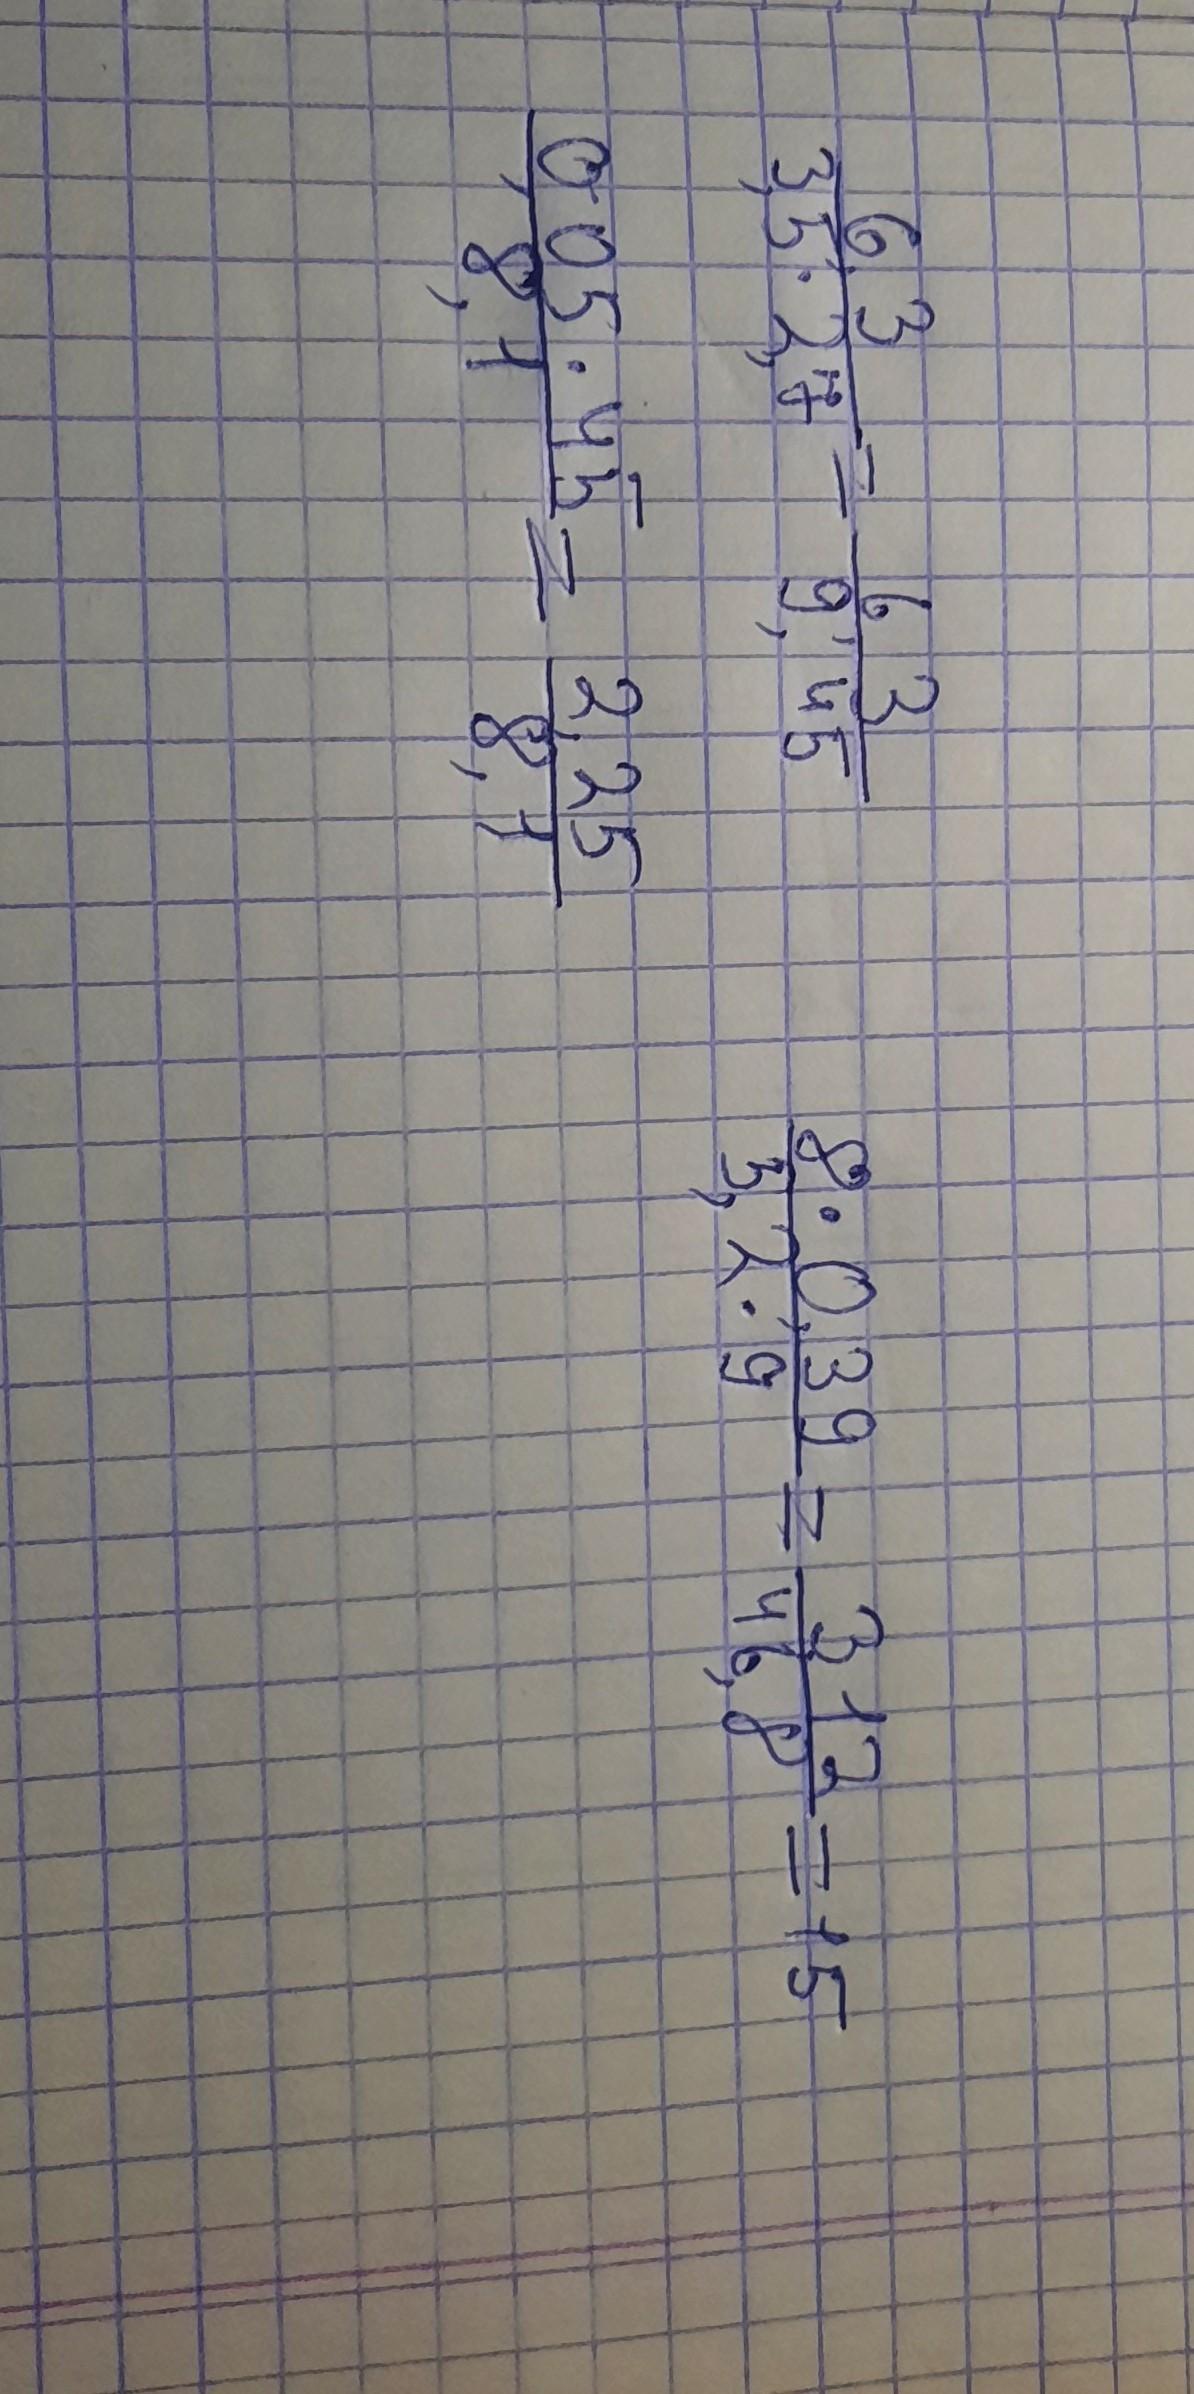 6,3 / 3,5 · 2,7 = 6,3 / 9,45
8 · 0,39 / 3,2 · 9 = 3,12 / 46,8 = 15
0,05 · 45 / 8,1 = 2,25 / 8,1